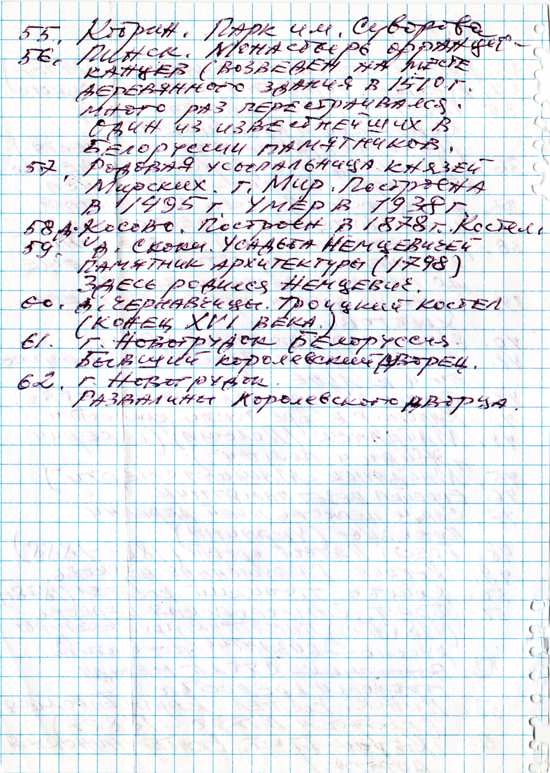 55. Кобрин. Парк им. Суворова
56. Пинск. Монастырь францис-
канцев (возведен на месте
деревянного здания в 1510 г.
много раз перестраивался.
Один из известнейших в
Белоруссии памятников.
57. Родовая усыпальница князей
Мирских. г. Мир. Построена
в 1495 г умер в 1938 г
58. д. Косово. Построен в 1878 г. Костел.
59. д. Скоки. Усадьба Немцевичей
памятник архитектуры (1798)
Здесь родился Немцевич.
60. д. Чернавчицы. Троицкий костел
(конец XVI века.)
61. г. Новогрудок Белоруссия.
Бывший королевский дворец.
62. г. Новогрудок.
Развалины королевского дворца.